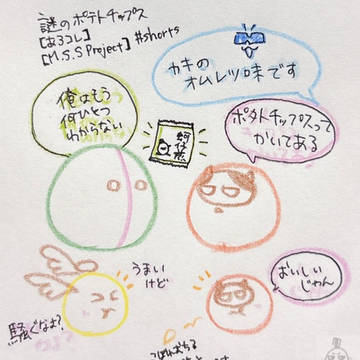 謎のポテトチップス
[あろコレ]
[M.S.S Project] #shorts
カキの
オムレツ味です
俺はもう
何ひとつ
わからない
蚵仔煎
ポタトチップスって
かいてある
うまい
けど
おいしい
じゃん